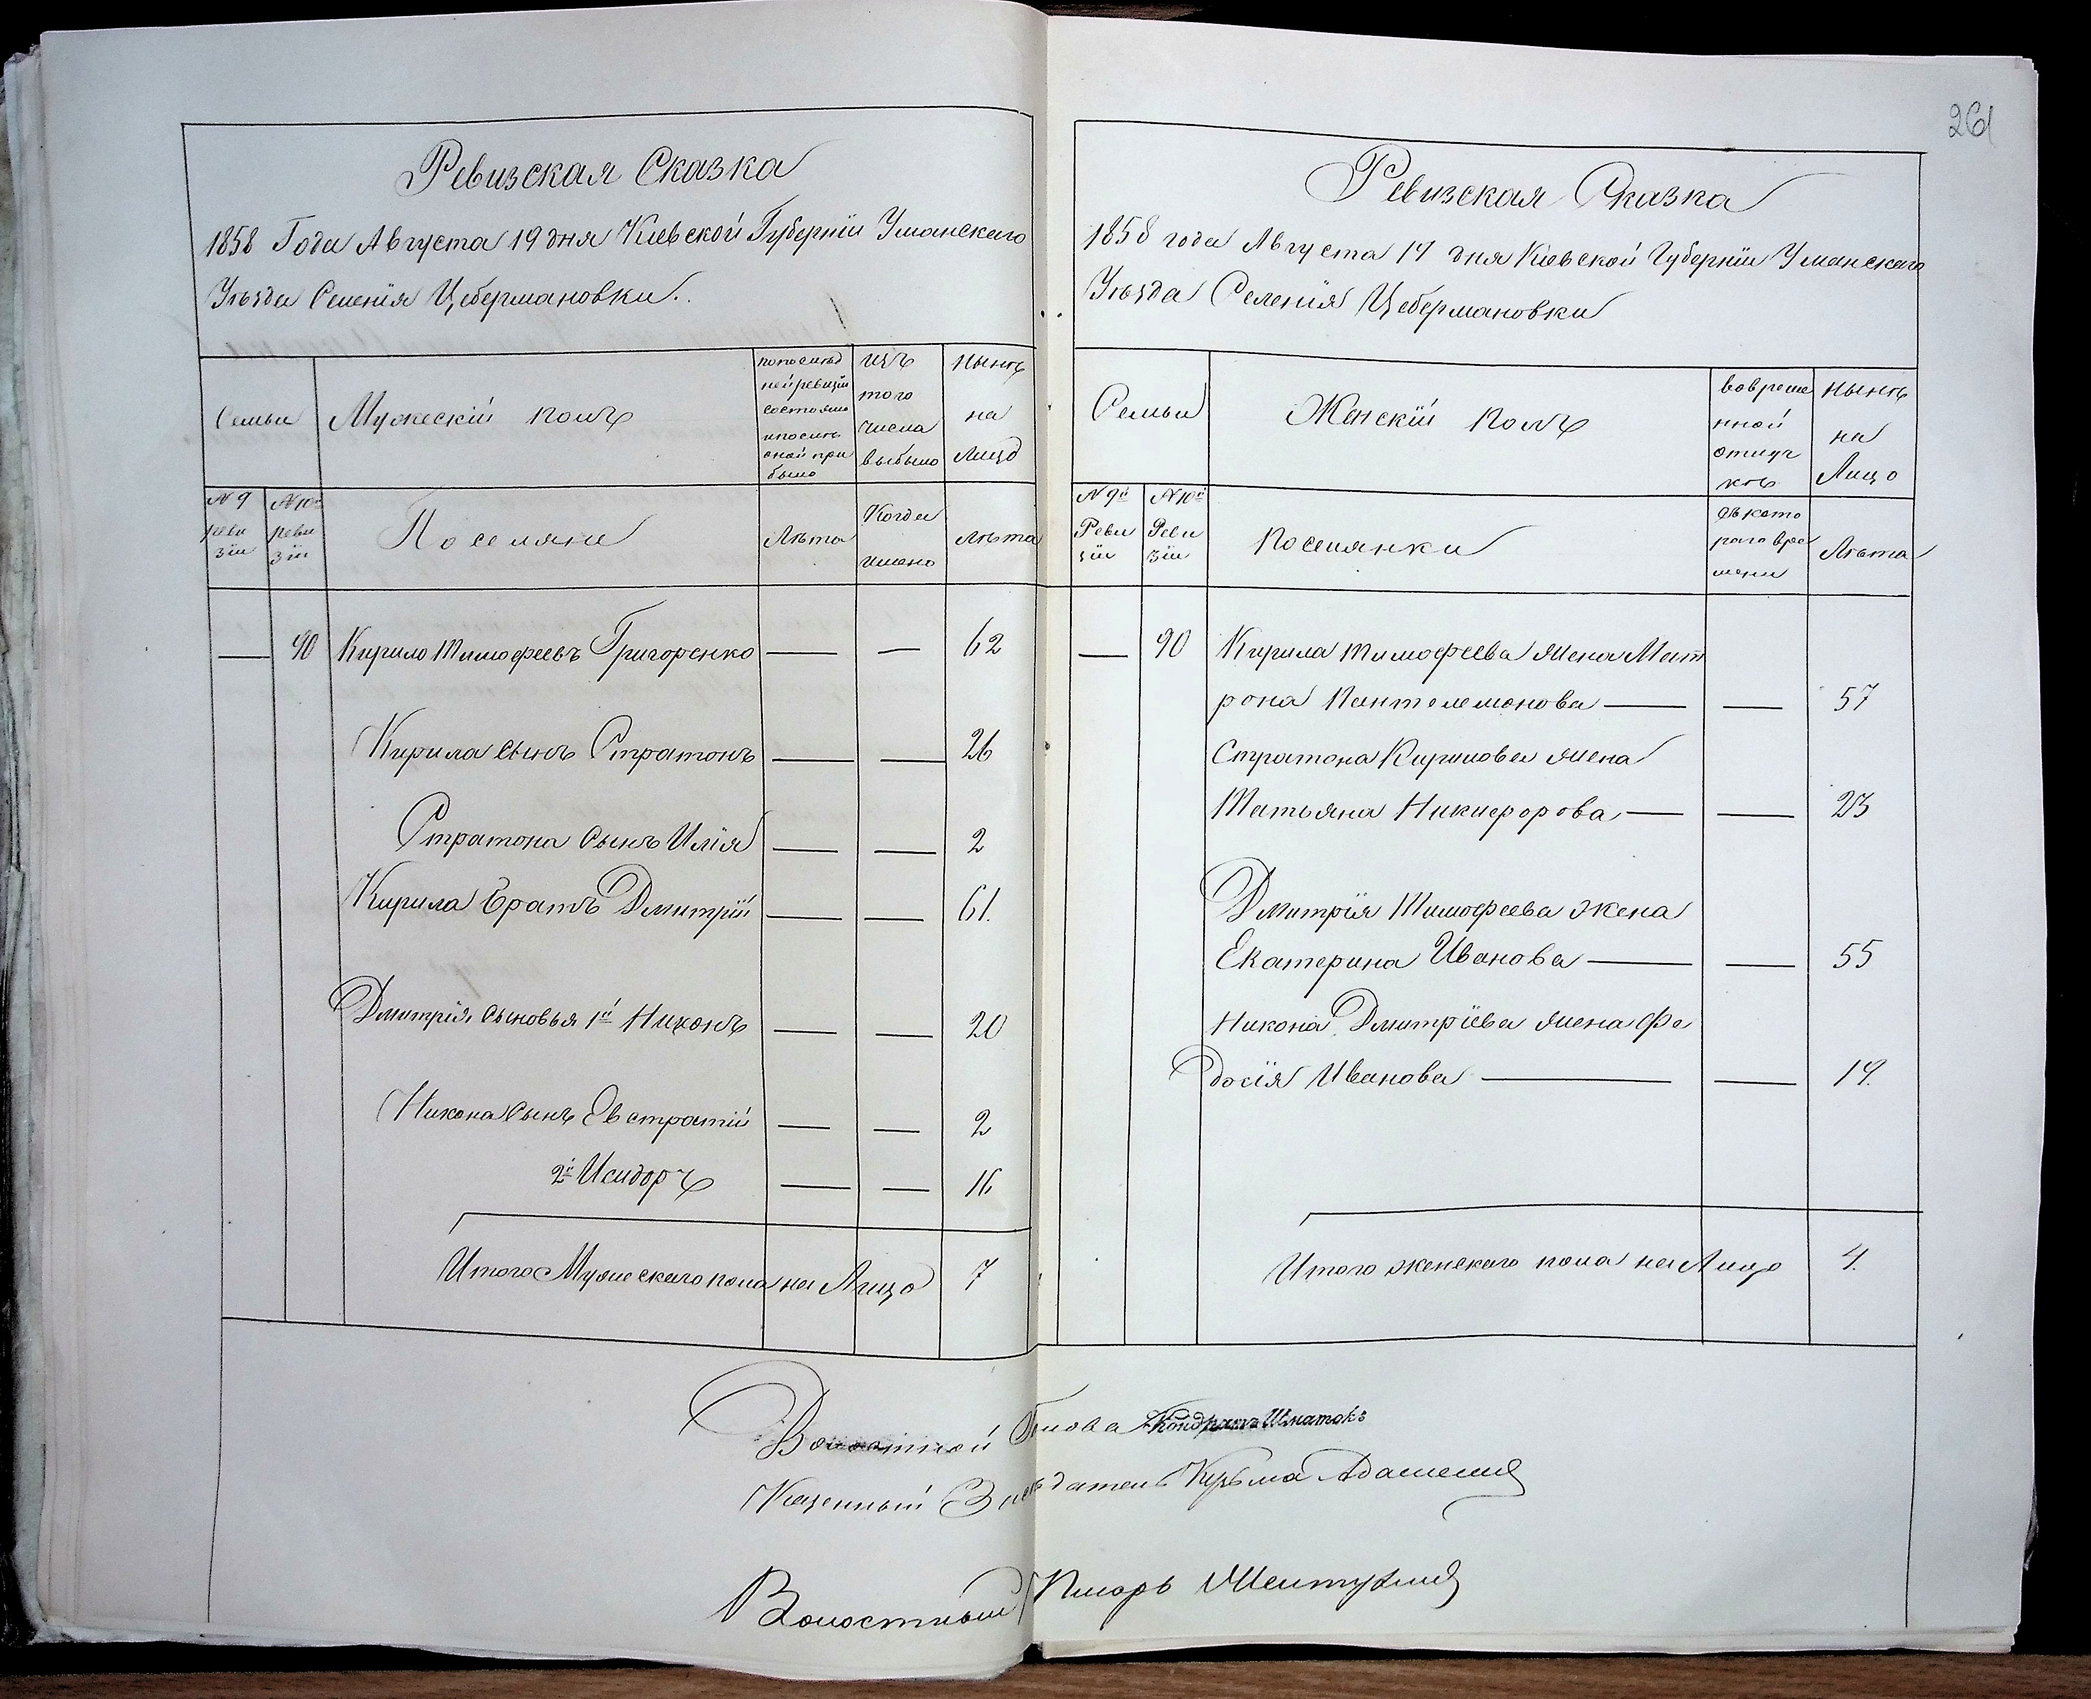 261
Ревизская Сказка
1858 Года Августа 19 дня Киевской Губерніи Уманскаго
Уѣзда Селенія Цебермановки.
Семьи
Мужескій полъ
по послѣд
ней ревизіи
состояло
и послѣ
оной при
было
изъ
того
числа
выбыло
Нынѣ
на
Лицо
№ 9
реви
зіи
№ 10й
реви
зіи
Поселяне
Лѣта
Когда
имено
Лѣта
90 Кирило Тимофеевъ Григоренко — — 62
Кирила сынъ Стратонъ — — 26
Стратона Сынъ Илія — — 2
Кирила братъ Дмитрій — — 61.
Дмитрія сыновья 1й Никонъ — — 20
Никона Сынъ Евстратій — — 2
2й Исидоръ — — 16
Итого Мужескаго пола на Лицо 7
Ревизская Сказка
1858 года Августа 19 дня Кіевской Губерніи Уманскаго
Уѣзда Селенія Цебермановки
Семьи
Женскій полъ
во време
нной
отлуч
кѣ
Нынѣ
на
Лицо
№ 9й
Реви
зіи
№ 10й
Реви
зіи
Поселянки
съ кото
раго вре
мени
Лѣта
— 90 Кирила Тимофеева жена Мат
рона Пантелемонова — — 57
Стратона Кирилова жена
Татьяна Никифорова — — 23
Дмитрія Тимофеева жена
Екатерина Иванова — — 55
Никона Дмитріева жена Фе
досія Иванова — — 19.
Итого женскаго пола на Лицо 4.
Волостной Голова Кондратъ Шматокъ
Казенный Засѣдатель Кузьма
Волостный Писарь